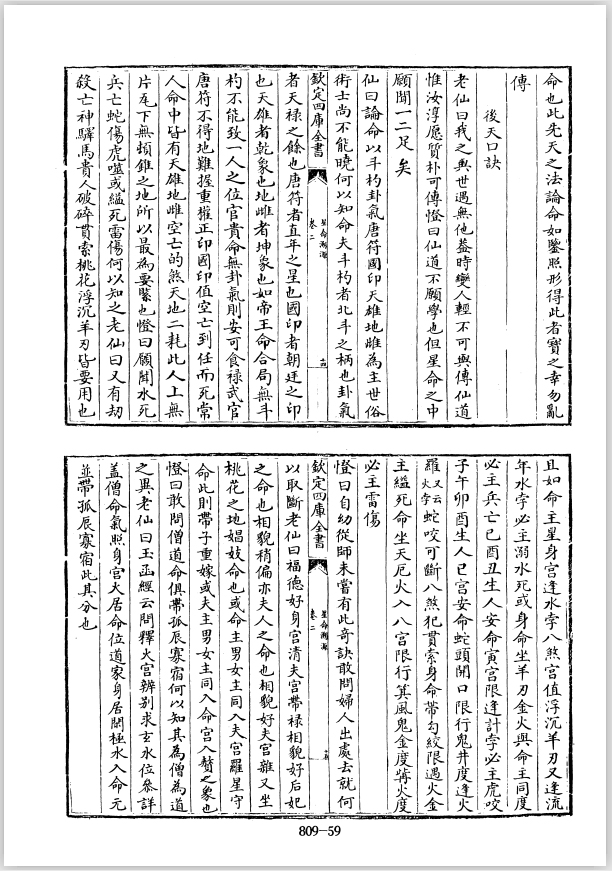 命也此先天之法論命如鑒照形得此者寳之幸勿亂
傳
後天口訣
老仙曰我之與世遇無他葢時變人輕不可與傳仙道
惟汝淳愿質朴可傳憕曰仙道不願學也但星命之中
願聞一二足矣
仙曰論命以斗杓卦氣唐符國印天雄地雌為主世俗
術士尚不能曉何以知命夫斗杓者北斗之柄也卦氣
欽定四庫全書
星命溯源
卷二
者天禄之餘也唐符者直年之星也國印者朝廷之印
也天雄者乾象也地雌者坤象也如帝王命合局無斗
杓不能致一人之位官貴命無卦氣則安可食禄武官
唐符不得地難握重權正印國印值空亡到任而死常
人命中皆有天雄地雌空亡的煞天地二耗此人上無
片瓦下無頓錐之地所以最為要緊也憕曰願聞水死
兵亡蛇傷虎噬或縊死雷傷何以知之老仙曰又有劫
殺亡神驛馬貴人破碎貫索桃花浮沉羊刃皆要用也
且如命主星身宫逢水孛八煞宫值浮沉羊刃又逢流
年水孛必主溺水死或身命坐羊刃金火與命主同度
必主兵亡巳酉丑生人安命寅宫限逢計孛必主虎咬
子午卯酉生人巳宫安命蛇頭開口限行鬼井度逢火
羅又云火孛蛇咬可斷八煞犯貫索身命帶勾絞限遇火金
主縊死命坐天厄火入八宫限行箕風鬼金度觜火度
必主雷傷
憕曰自幼從師未嘗有此竒訣敢問婦人出處去就何
欽定四庫全書
星命溯源
卷二
以取斷老仙曰福德好身宫清夫宫帶禄相貌好后妃
之命也相貌稍偏亦夫人之命也相貌好夫宫雜又坐
桃花之地娼妓命也或命主男女主同入夫宫羅星守
命此則帶子重嫁或夫主男女主同入命宫入贅之象也
憕曰敢問僧道命俱帶孤辰寡宿何以知其為僧為道
之異老仙曰玉函經云問釋火宫辨别求玄水位參詳
葢僧命氣照身宫大居命位道家身居閑極水入命元
並帶孤辰寡宿此其分也
809-59